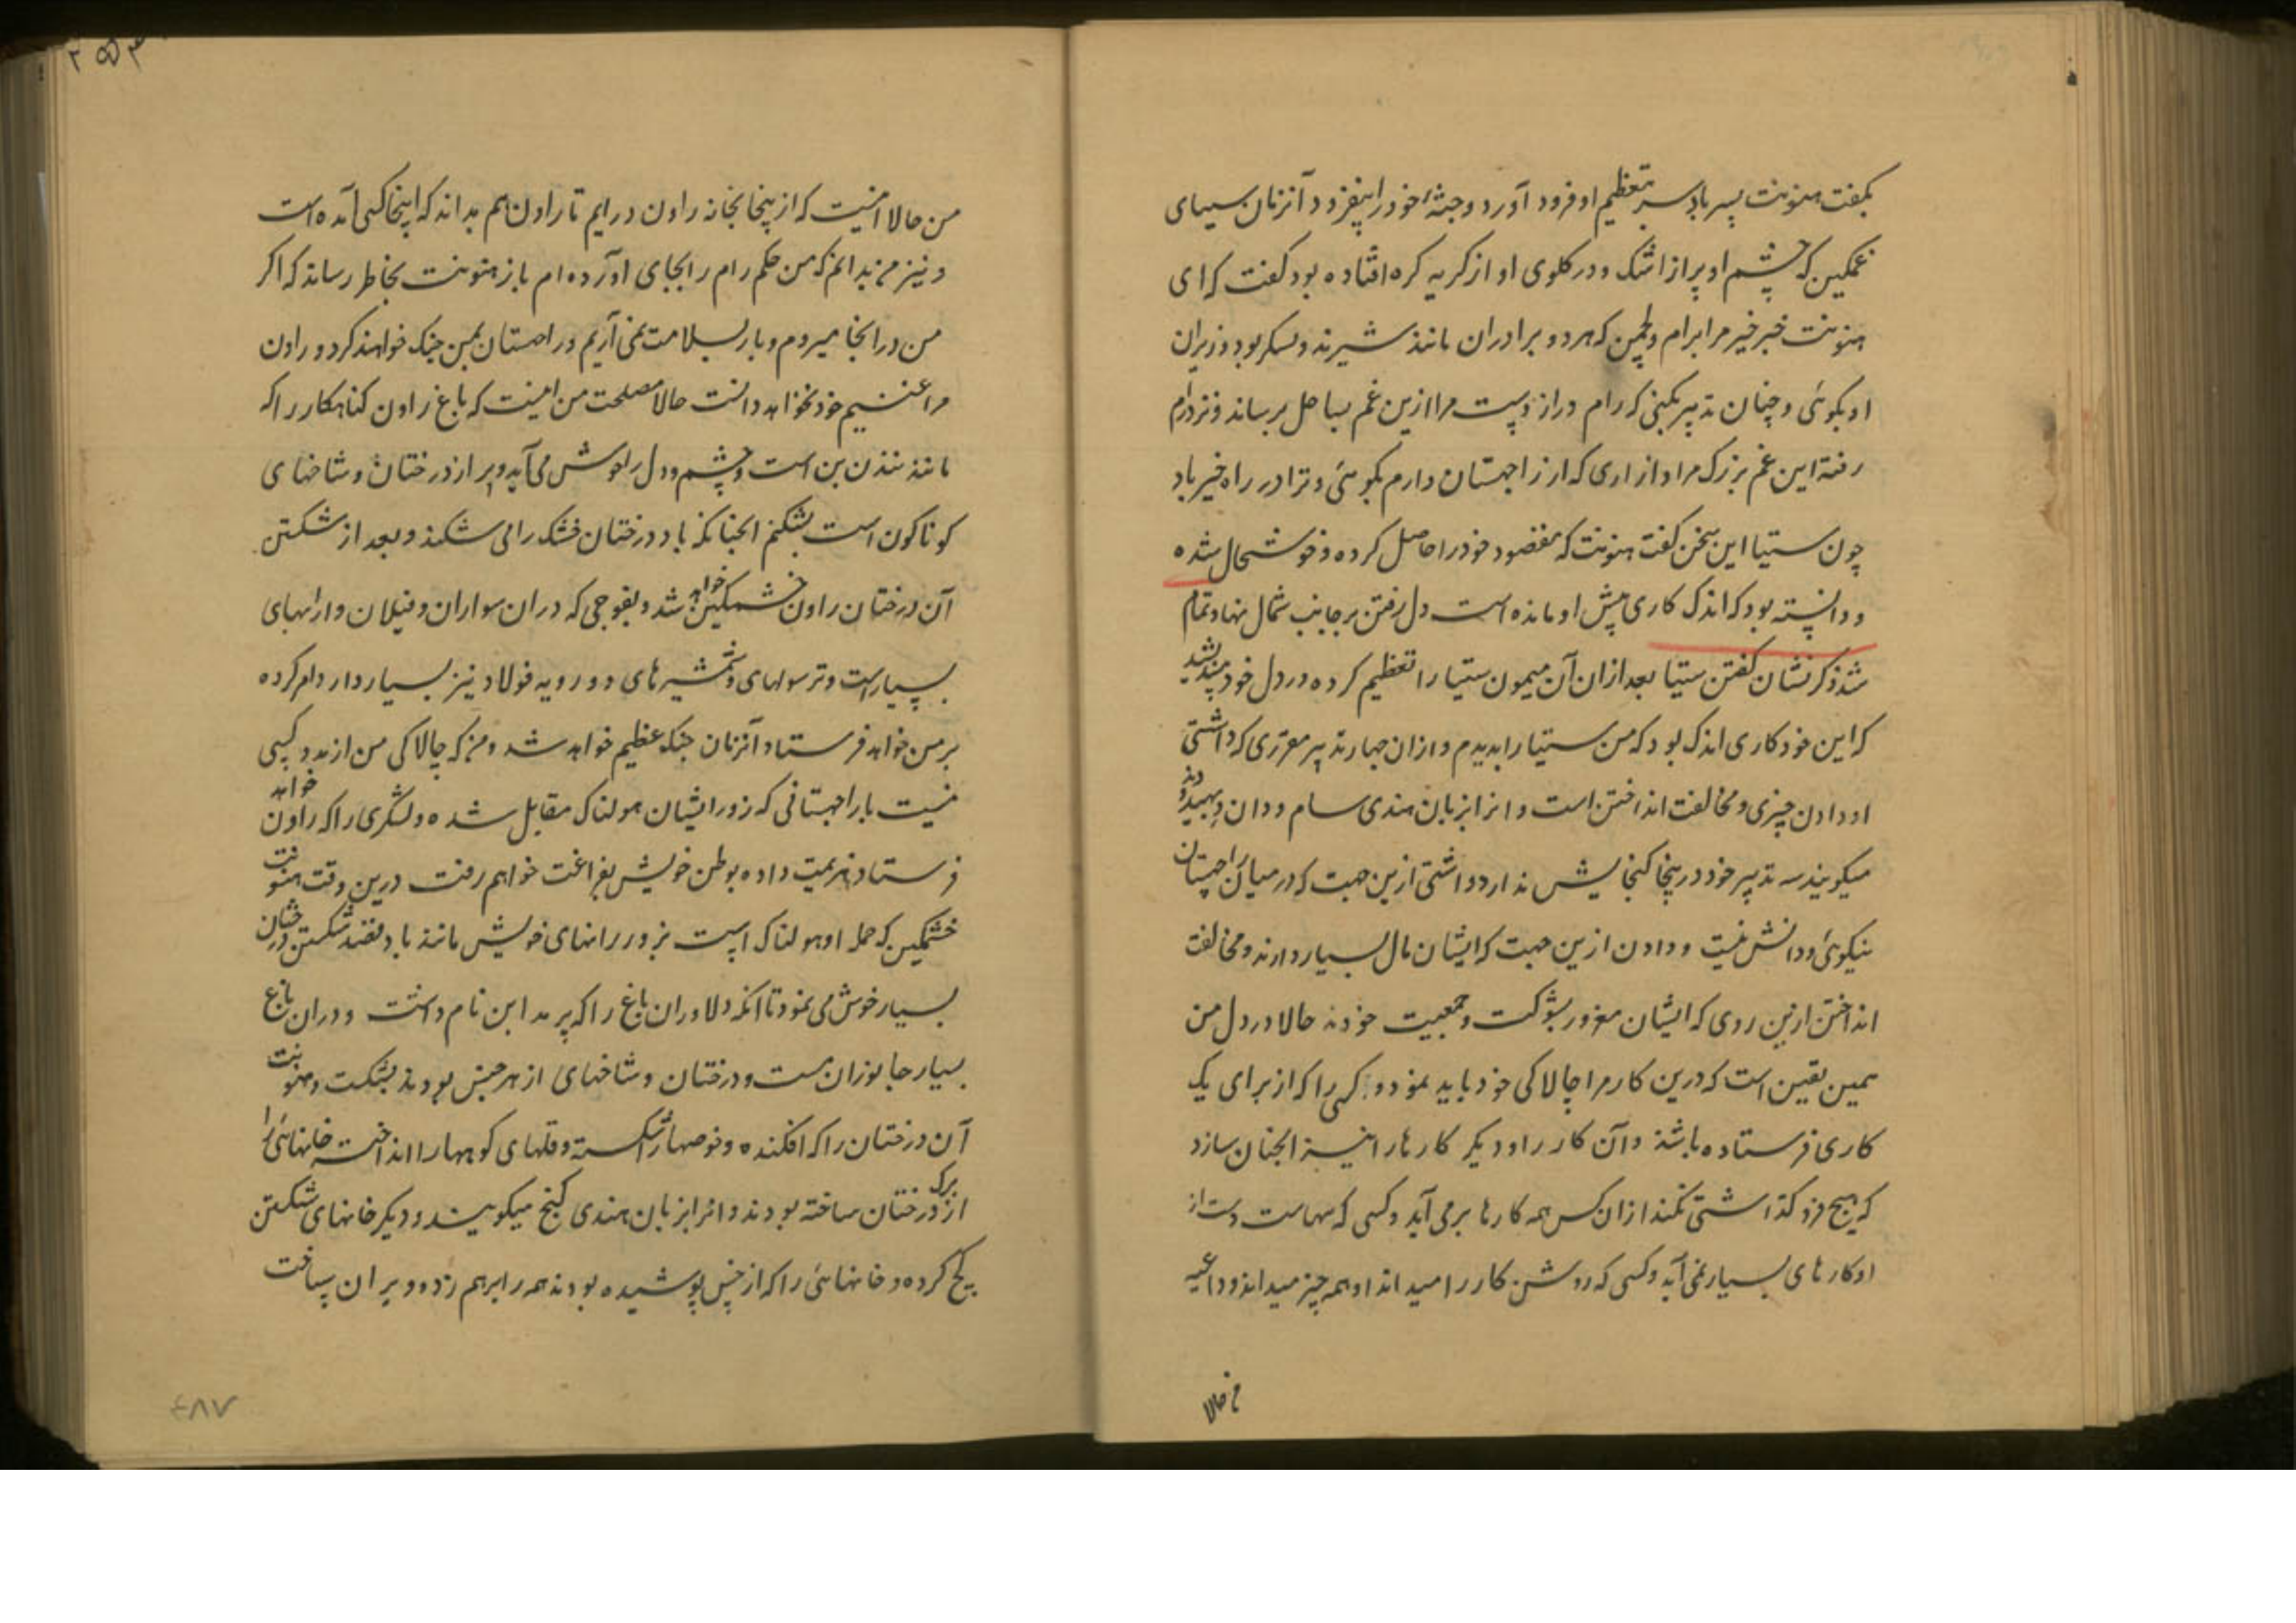 بگفت هنونت پسر باد سر بتعظیم او فرود آورد و جثهٔ خود را بیفزود آنزمان سیتای
غمگین که چشم او پر از اشک و در گلوی او از گریه گره افتاده بود گفت که ای
هنونت خبر خیر مرا برام و لچمن که هر دو برادران مانند شیرند و سکریو و وزیران
او بگوئی و چنان تدبیر بکنی که رام دراز دست مرا ازین غم بساحل برساند و نزد رام
رفته این غم بزرگ مرا و ازاری که از راچهستان دارم بگوئی و ترا در راه خیر باد
چون ستیا این سخن گفت هنونت که مقصود خود را حاصل کرده و خوشحال شده
و دانسته بود که اندک کاری پیش او مانده است دل رفتن بر جانب شمال نهاد و تمام
شد ذکر نشان گفتن ستیا بعد ازان آن میمون ستیا را تعظیم کرده در دل خود اندیشید
که این خود کاری اندک بود که من ستیا را بدیدم و ازان چهار تدبیر مقرری که داشتی
او دادن چیزی و مخالفت انداختن است و انرا بزبان هندی سام و دان و بهید و دند
میگویند سه تدبیر خود درینجا گنجایش ندارد و اشتی ازین جهت که در میان راچهستان
نیکوئی و دانش نیست و دادن ازین جهت که ایشان مال بسیار دارند و مخالفت
انداختن ازین روی که ایشان مغرور بشوکت و جمعیت خودند حالا در دل من
همین یقین است که درین کار مرا چالاکی خود باید نمود و کسی را که از برای یک
کاری فرستاده باشند و آن کار را و دیگر کارها را نیز انچنان سازد
که هیچ فرو گذاشتی نکند ازان کس همه کارها بر می آید و کسی که سهاست دست از
او کارهای بسیار نمی آید و کسی که روشن کار را میداند او همه چیز میداند و داعیه
من حالا
من حالا اینست که از ینجا بخانه راون در ایم تا راون هم بداند که اینجا کسی آمده است
و نیز من بدانم که من حکم رام را بجای آورده ام باز هنونت بخاطر رساند که اگر
من در انجا میروم و بار بسلامت نمی آریم و راچهستان بمن جنگ خواهند کرد و راون
مرا غنیم خود نخواهد دانست حالا مصلحت من اینست که باغ راون گناهکار را که
مانند نندن بن است و چشم و دل را خوش می آید و پر از درختان و شاخهای
گوناگون است بشکنم انچنانکه باد درختان خشک را می شکند و بعد از شکستن
آن درختان راون خشمگین خواهد شد و بفوجی که دران سواران و فیلان و ارابهای
بسیار است و ترسولهای و شمشیرهای دو رویه فولاد نیز بسیار دارد ام کرده
بر من خواهد فرستاد آنزمان جنگ عظیم خواهد شد و من که چالاکی من از مدد کسی
نیست با راچهستانی که زور ایشان هولناک مقابل شده و لشکری را که راون خواهد
فرستاد هزیمت داده بوطن خویش بفراغت خواهم رفت درین وقت هنونت
خشمگین که حمله او هولناک است بزور رانهای خویش مانند باد بقصد شکستن درختان
بسیار خوش می نمود تا انکه دلاور ان باغ را که پرمدا بن نام داشت و دران باغ
بسیار جانوران مست و درختان و شاخهای از هر جنس بودند بشکست و هنونت
آن درختان را که افکنده و حوضها را شکسته و قلهای کوهها را انداخته خانهائی را
از برگ درختان ساخته بودند و انرا بزبان هندی کنج میگویند و دیگر خانهای شکستن
گچ کرده و خانهائی را که از خس پوشیده بودند همه را برهم زد و ویران ساخت
۴۸۷